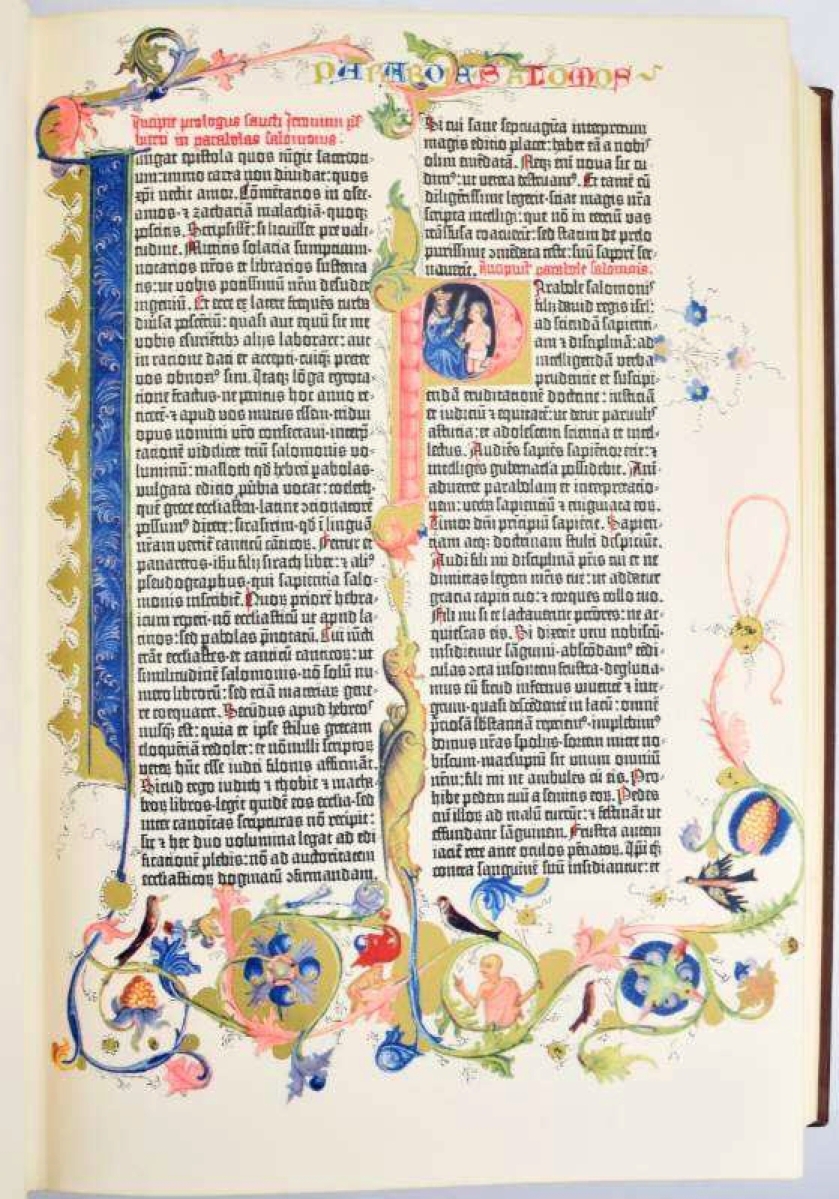 PARABOLE SALOMOIS
Incipit prologus sancti Jeronimi p̄s-
biteri in parabolas salomonis.
Iungat epistola quos iūgit sacerdoci-
um: immo carta non diuidat: quos
xp̄i nectit amor. Cōmētarios in osee-
amos ⁊ zachariā malachiā-quoq₃
poscitis. Scripsissē: si licuisset pre vali-
tudine. Mittitis solacia sumptuum-
notarios nr̄os et librarios sustenta-
tis: ut vobis potissimū nr̄m desudet
ingeniū. Et ecce ex latere freq̄ns turba
diūsa poscētiū: quasi aut equū sit me
vobis esurientib₃ alijs laborare: aut
in racione dati et accepti-cuiq̄₃ preter
vos obnoxi⁹ sim. Itaq₃ lōga egrota-
tione fractus-ne penitus hoc anno re-
ticerē-⁊ apud vos mutus essem-tridui
opus nomini vr̄o consecraui-interp̄-
tationē videlicet triū salomonis vo-
luminū: masloth qd̄ hebrei pabolas-
vulgata editio pūbia vocat: coeleth-
quē grece ecclīasten-latine ɔcionatorē
possum⁹ dicere: sirasirim-qd̄ ī linguā
nr̄am vertit̄ canticū cāticoꝝ. Fertur et
panaretos-ihū filij sirach liber: ⁊ ali⁹
pseudographus-qui sapientia salo-
monis inscribit̄. Quoꝝ priorē hebra-
icum reperi-nō ecclīasticū ut apud la-
tinos: sed pabolas p̄notatū. Cui iūcti
erāt ecclīastes-et canticū canticoꝝ: ut
similitudinē salomonis-nō solū nu-
mero librorū: sed eciā materiaꝝ gene-
re coequaret. Secūdus apud hebreos
nusq̄ est: quia et ipse stilus grecam
eloquētiā redolet: et nōnulli scriptoꝝ
veteꝝ hūc esse iudei filonis affirmāt.
Sicud ergo iudith ⁊ thobie ⁊ macha-
beoꝝ libros-legit quidē eos ecclīa-sed
inter canoīcas scripturas nō recipit:
sic ⁊ hec duo volumina legat ad edi-
ficationē plebis: nō ad auctoritatem
ecclīasticoꝝ dogmatū ɔfirmandam.
Si cui sane septuagīta interpretum
magis editio placet: habet eā a nobis
olim emēdatā. Neq₃ eni nova sic cu-
dim⁹: ut vetera destruam⁹. Et tamē cū
diligētissime legerit-sciat magis nr̄a
scripta intelligi: que nō in terciū vas
trāsfusa coacuerīt: sed statim de prelo
purissime ɔmēdata teste: suū saporē ser-
uauerīt. Incipiūt parabole salomonis.
Parabole salomonis
filij dauid regis isrl̄:
ad sciēdā sapienti-
am ⁊ disciplinā: ad
intelligendā verba
prudentie et suscipi-
endā eruditationē doctrine: iusticiā
et iudiciū ⁊ equitatē: ut detur paruulis
astutia: et adolescenti scientia et intel-
lectus. Audiēs sapiēs sapientior erit: ⁊
intelliges gubernacla possidebit. Ani-
aduertet parabolam et interpretatio-
nem: verba sapientiū ⁊ enigmata eoꝝ.
Timor dn̄i principiū sapiētie. Sapien-
tiam atq₃ doctrinam stulti despiciūt.
Audi fili mi disciplinā pr̄is tui et ne
dimittas legem mr̄is tue: ut addatur
gracia capiti tuo: ⁊ torques collo tuo.
Fili mi si te lactauerint peccōres: ne ac-
quiescas eis. Si dixerit veni nobiscū-
insidiemur sāguini-abscōdam⁹ tēdi-
culas ɔtra insontem frustra-deglutia-
mus eū sicud infernus viuentē ⁊ inte-
grum-quasi discēdētē in lacū: omnē
p̄ciosā sbstantiā reperiem⁹-implebim⁹
domus nr̄as spolijs-sortem mitte no-
biscum-marsupiū sit unum omniū
nr̄m: fili mi ne ambules cū eis. Pro-
hibe pedem tuū a semitis eoꝝ. Pedes
eni illoꝝ ad malū currūt: ⁊ festināt ut
effundant sāguinem. Frustra autem
iacit̄ rete ante oculos pēnatoꝝ. Ip̄i q̄₃
contra sanguinē suū insidiantur: et